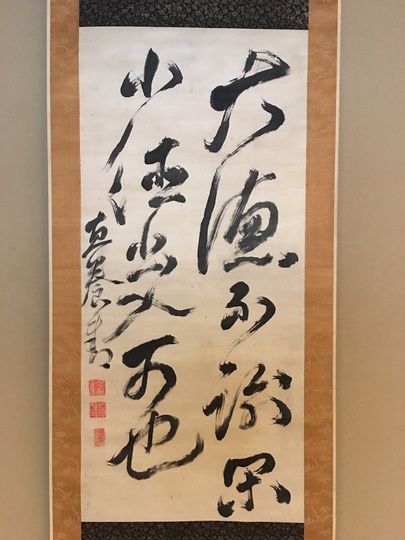 大德不踰閑
小德出入可也